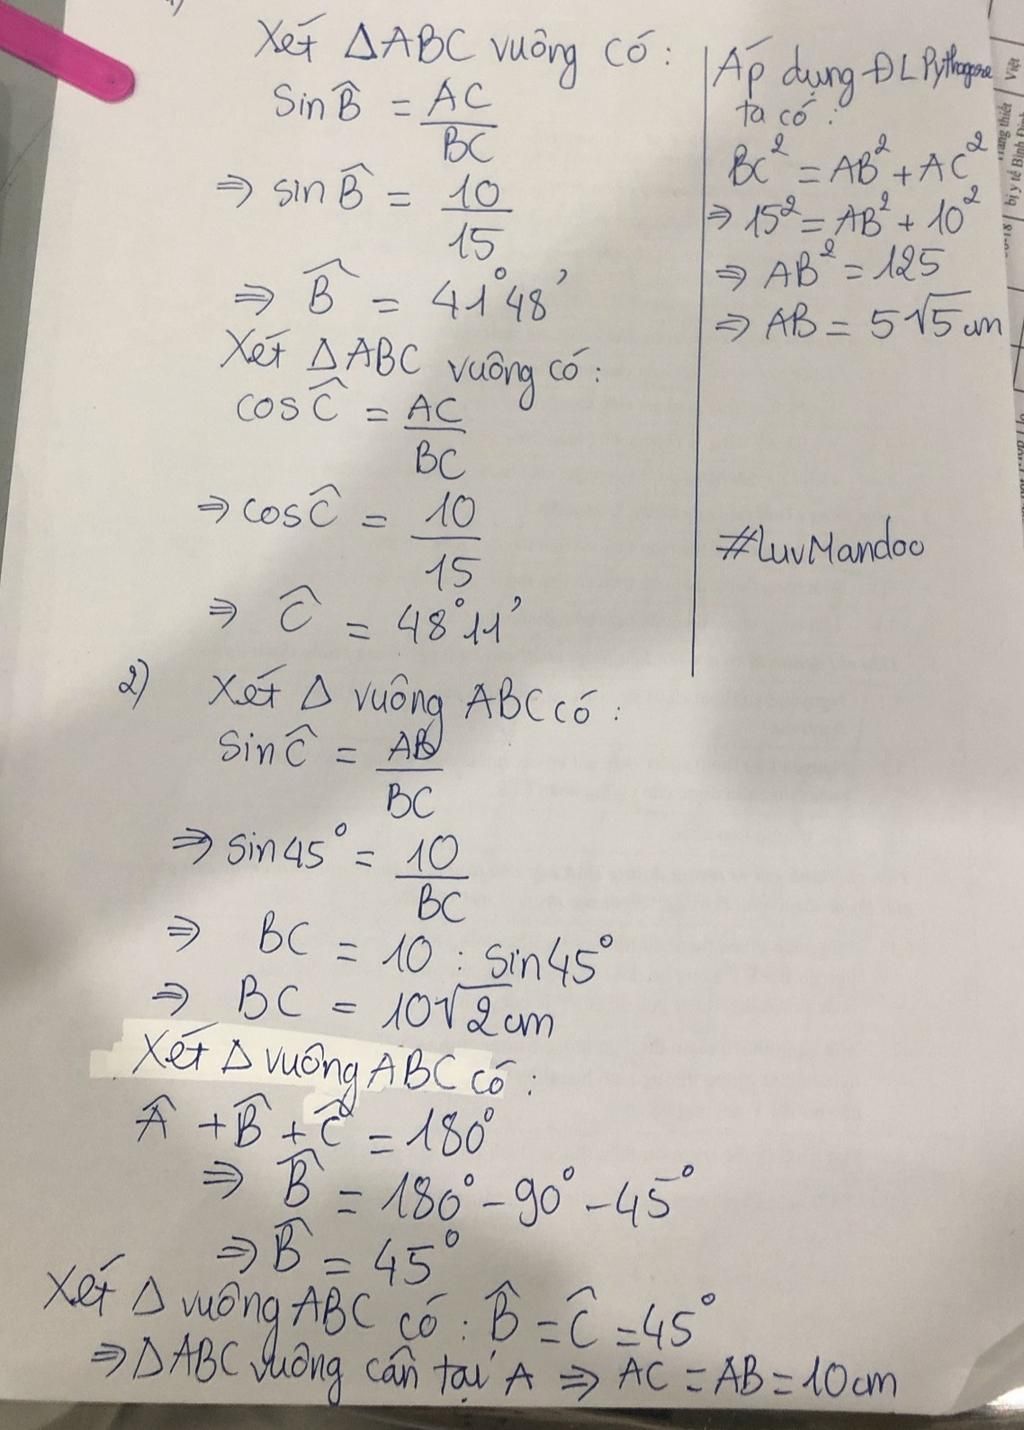 Xét ΔABC vuông có:
Sin B̂ = AC/BC
⇒ sin B̂ = 10/15
⇒ B̂ = 41°48'
Xét ΔABC vuông có:
cos Ĉ = AC/BC
⇒ cos Ĉ = 10/15
⇒ Ĉ = 48°11'
Áp dụng ĐL Pythagore
ta có:
BC² = AB² + AC²
⇒ 15² = AB² + 10²
⇒ AB² = 125
⇒ AB = 5√5 cm
#LuvMandoo
2) Xét Δ vuông ABC có:
Sin Ĉ = AB/BC
⇒ Sin 45° = 10/BC
⇒ BC = 10 : Sin 45°
⇒ BC = 10√2 cm
Xét Δ vuông ABC có:
Â + B̂ + Ĉ = 180°
⇒ B̂ = 180° - 90° - 45°
⇒ B̂ = 45°
Xét Δ vuông ABC có: B̂ = Ĉ = 45°
⇒ ΔABC vuông cân tại A ⇒ AC = AB = 10cm
Việt
bị y tế Bình Định